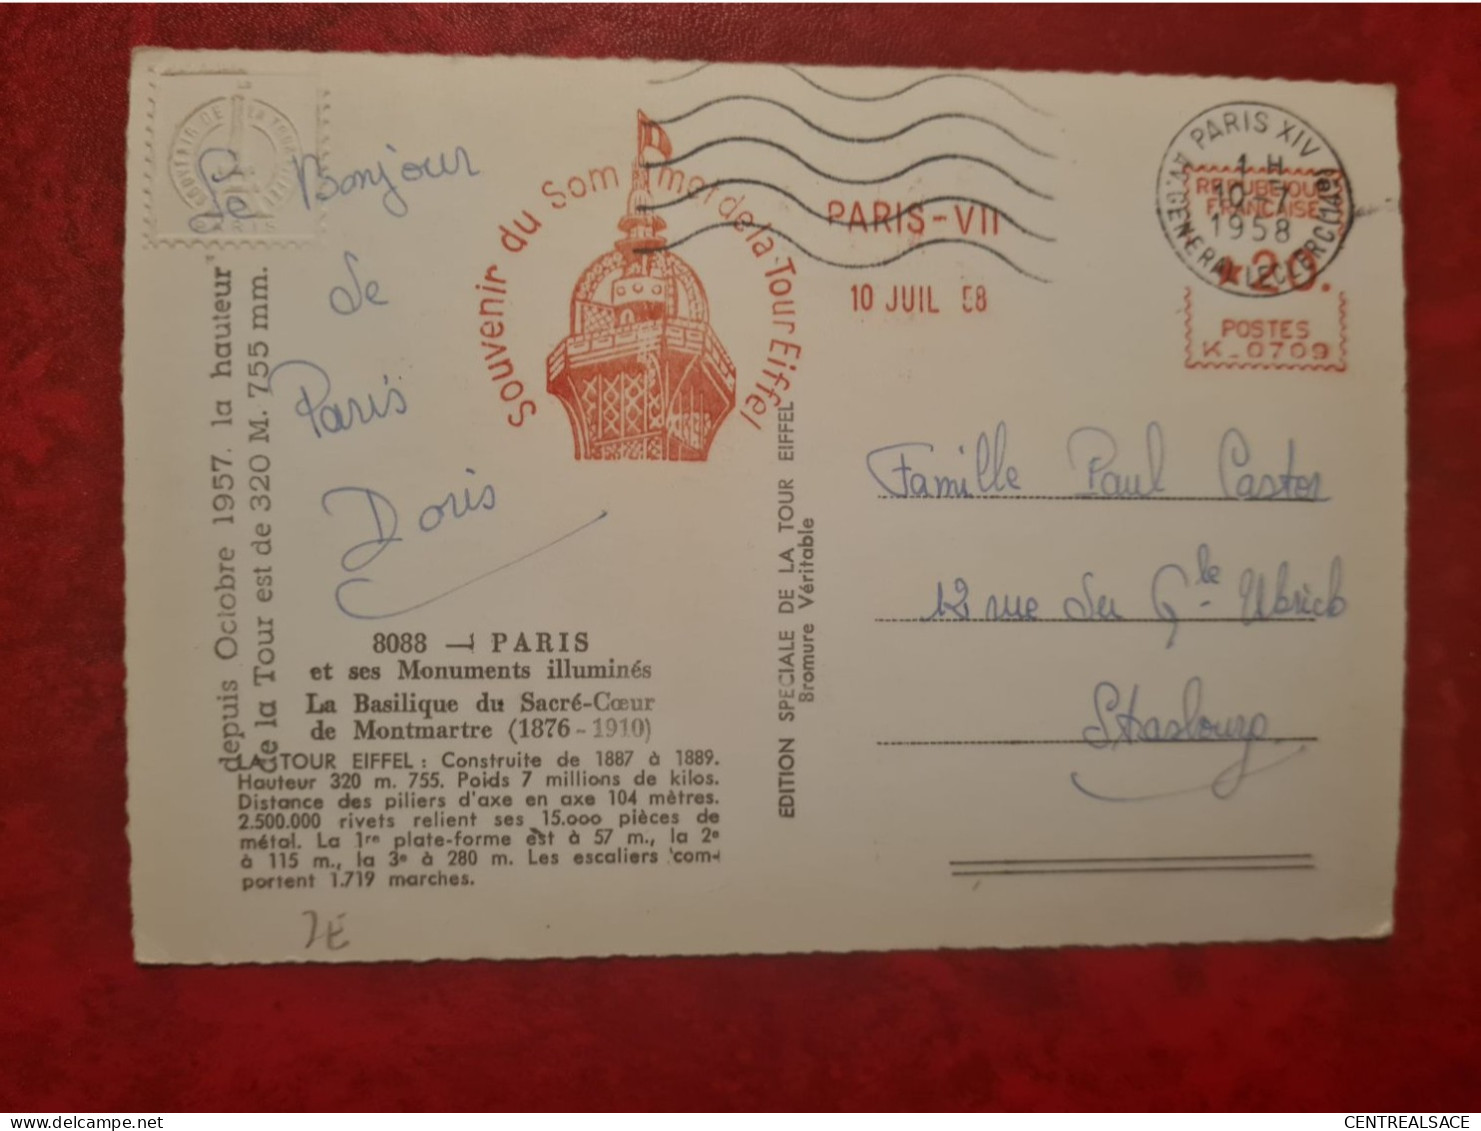 SOUVENIR DE LA TOUR EIFFEL
PARIS
Le Bonjour
de
Paris
Doris
Souvenir du Sommet de la Tour Eiffel
PARIS-VII
10 JUIL 58
PARIS XIV
1 H
10-7
1958
AV. GENERAL LECLERC (14e)
REPUBLIQUE
FRANCAISE
★20.
POSTES
K_0709
depuis Octobre 1957. la hauteur
de la Tour est de 320 M. 755 mm.
8088 — PARIS
et ses Monuments illuminés
La Basilique du Sacré-Cœur
de Montmartre (1876-1910)
LA TOUR EIFFEL : Construite de 1887 à 1889.
Hauteur 320 m. 755. Poids 7 millions de kilos.
Distance des piliers d'axe en axe 104 mètres.
2.500.000 rivets relient ses 15.000 pièces de
métal. La 1re plate-forme est à 57 m., la 2e
à 115 m., la 3e à 280 m. Les escaliers com-
portent 1.719 marches.
EDITION SPECIALE DE LA TOUR EIFFEL
Bromure Véritable
Famille Paul Castor
12 rue du Gle Uhrich
Strasbourg
CENTREALSACE